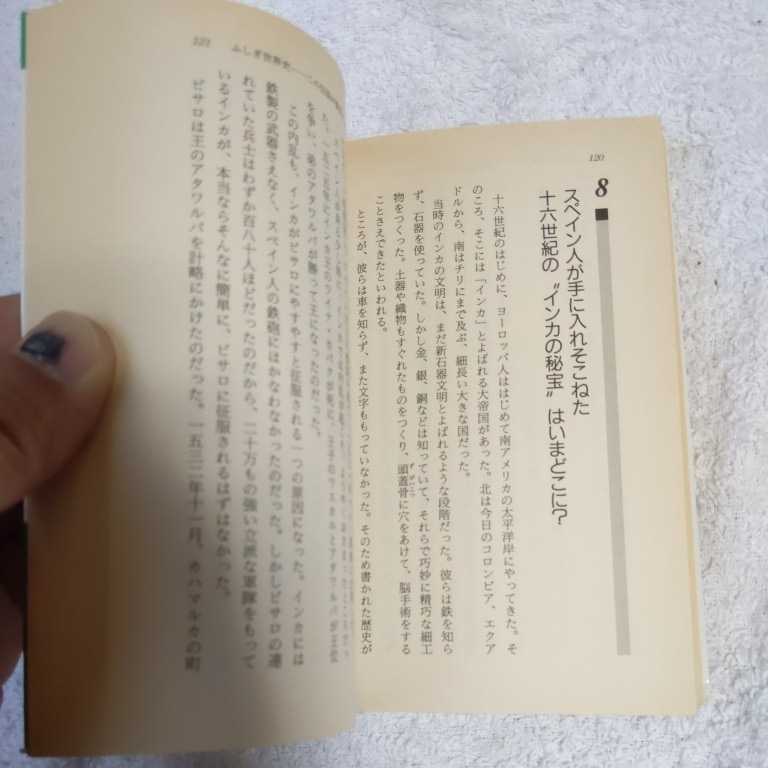 120
8
スペイン人が手に入れそこねた
十六世紀の〝インカの秘宝〟はいまどこに?
十六世紀のはじめに、ヨーロッパ人ははじめて南アメリカの太平洋岸にやってきた。そ
のころ、そこには「インカ」とよばれる大帝国があった。北は今日のコロンビア、エクア
ドルから、南はチリにまで及ぶ、細長い大きな国だった。
当時のインカの文明は、まだ新石器文明とよばれるような段階だった。彼らは鉄を知ら
ず、石器を使っていた。しかし金、銀、銅などは知っていて、それらで巧妙に精巧な細工
物をつくった。土器や織物もすぐれたものをつくり、頭蓋骨に穴をあけて、脳手術をする
ことさえできたといわれる。
ところが、彼らは車を知らず、また文字ももっていなかった。そのため書かれた歴史が
ふしぎ世界史
を争い、弟のアタワルパが勝って王になったのだった。
この内乱も、インカがピサロにやすやすと征服される一つの原因になった。インカには
鉄製の武器さえなく、スペイン人の鉄砲にはかなわなかったのだった。しかしピサロの連
れていた兵士はわずか百八十人ほどだったのだから、二十万もの強い立派な軍隊をもって
いるインカが、本当ならそんなに簡単に、ピサロに征服されるはずはなかった。
ピサロは王のアタワルパを計略にかけたのだった。一五三二年十一月、カハマルカの町